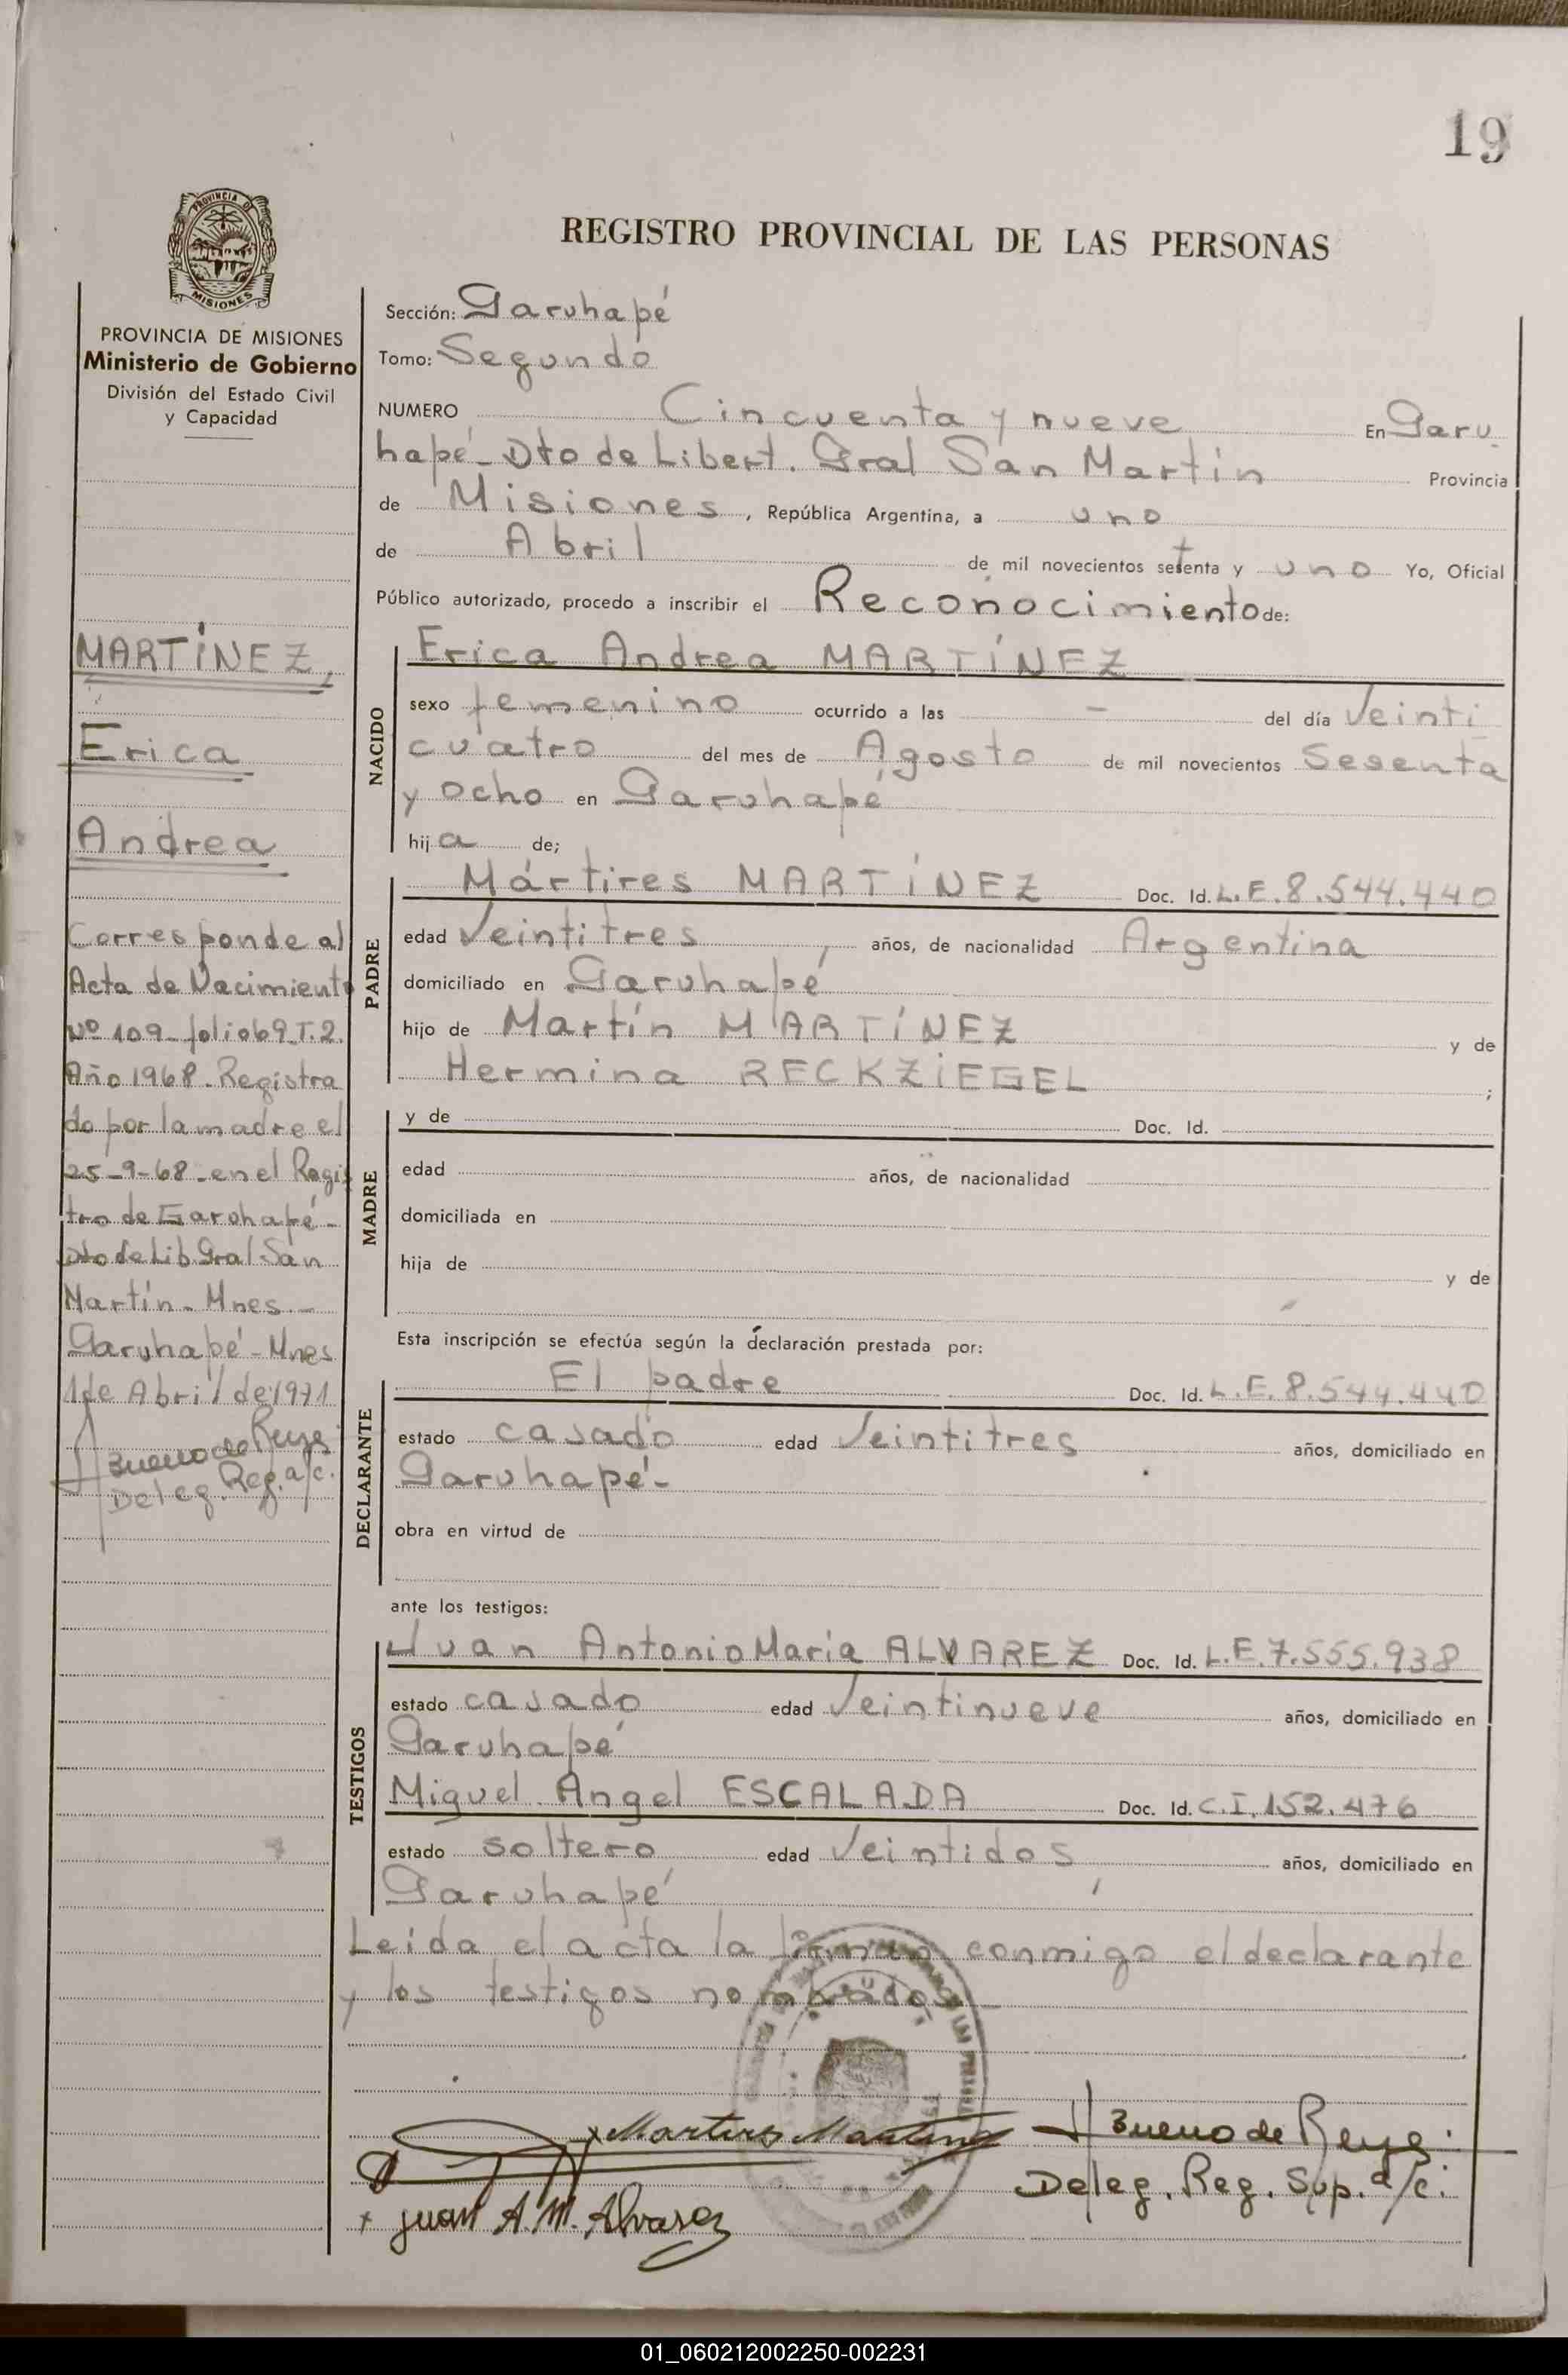 19
PROVINCIA DE
MISIONES
REGISTRO PROVINCIAL DE LAS PERSONAS
PROVINCIA DE MISIONES
Ministerio de Gobierno
División del Estado Civil
y Capacidad
MARTÍNEZ,
Erica
Andrea
Corresponde al
Acta de Nacimiento
Nº 109-folio 69 T.2.
Año 1968. Registra
do por la madre el
25-9-68-en el Regis
tro de Garuhapé-
Dto de Lib. Gral San
Martín-Mnes.-
Garuhapé-Mnes
1 de Abril de 1971
Bueno de Reyes
Deleg. Reg. a/c.
Sección: Garuhapé
Tomo: Segundo
NUMERO Cincuenta y nueve En Garu
hapé-Dto de Libert. Gral San Martín Provincia
de Misiones, República Argentina, a uno
de Abril de mil novecientos setenta y uno Yo, Oficial
Público autorizado, procedo a inscribir el Reconocimiento de:
NACIDO
Erica Andrea MARTÍNEZ
sexo femenino ocurrido a las - del día Veinti
cuatro del mes de Agosto de mil novecientos Sesenta
y ocho en Garuhapé
hija de;
PADRE
Mártires MARTÍNEZ Doc. Id. L.E. 8.544.440
edad Veintitres, años, de nacionalidad Argentina
domiciliado en Garuhapé
hijo de Martín MARTÍNEZ y de
Hermina RECKZIEGEL ;
MADRE
y de Doc. Id.
edad años, de nacionalidad
domiciliada en
hija de y de
Esta inscripción se efectúa según la declaración prestada por:
DECLARANTE
El padre Doc. Id. L.E. 8.544.440
estado casado edad Veintitres años, domiciliado en
Garuhapé-
obra en virtud de
ante los testigos:
TESTIGOS
Juan Antonio María ALVAREZ Doc. Id. L.E. 7.555.938
estado casado edad Veintinueve años, domiciliado en
Garuhapé
Miguel Angel ESCALADA Doc. Id. C.I. 152.476
estado soltero edad Veintidos, años, domiciliado en
Garuhapé
Leida el acta la firman conmigo el declarante
y los testigos nombrados-
x Martires Martinez
Bueno de Reyes
Deleg. Reg. Sup. a/c.
x Juan A. M. Alvarez
01_060212002250-002231